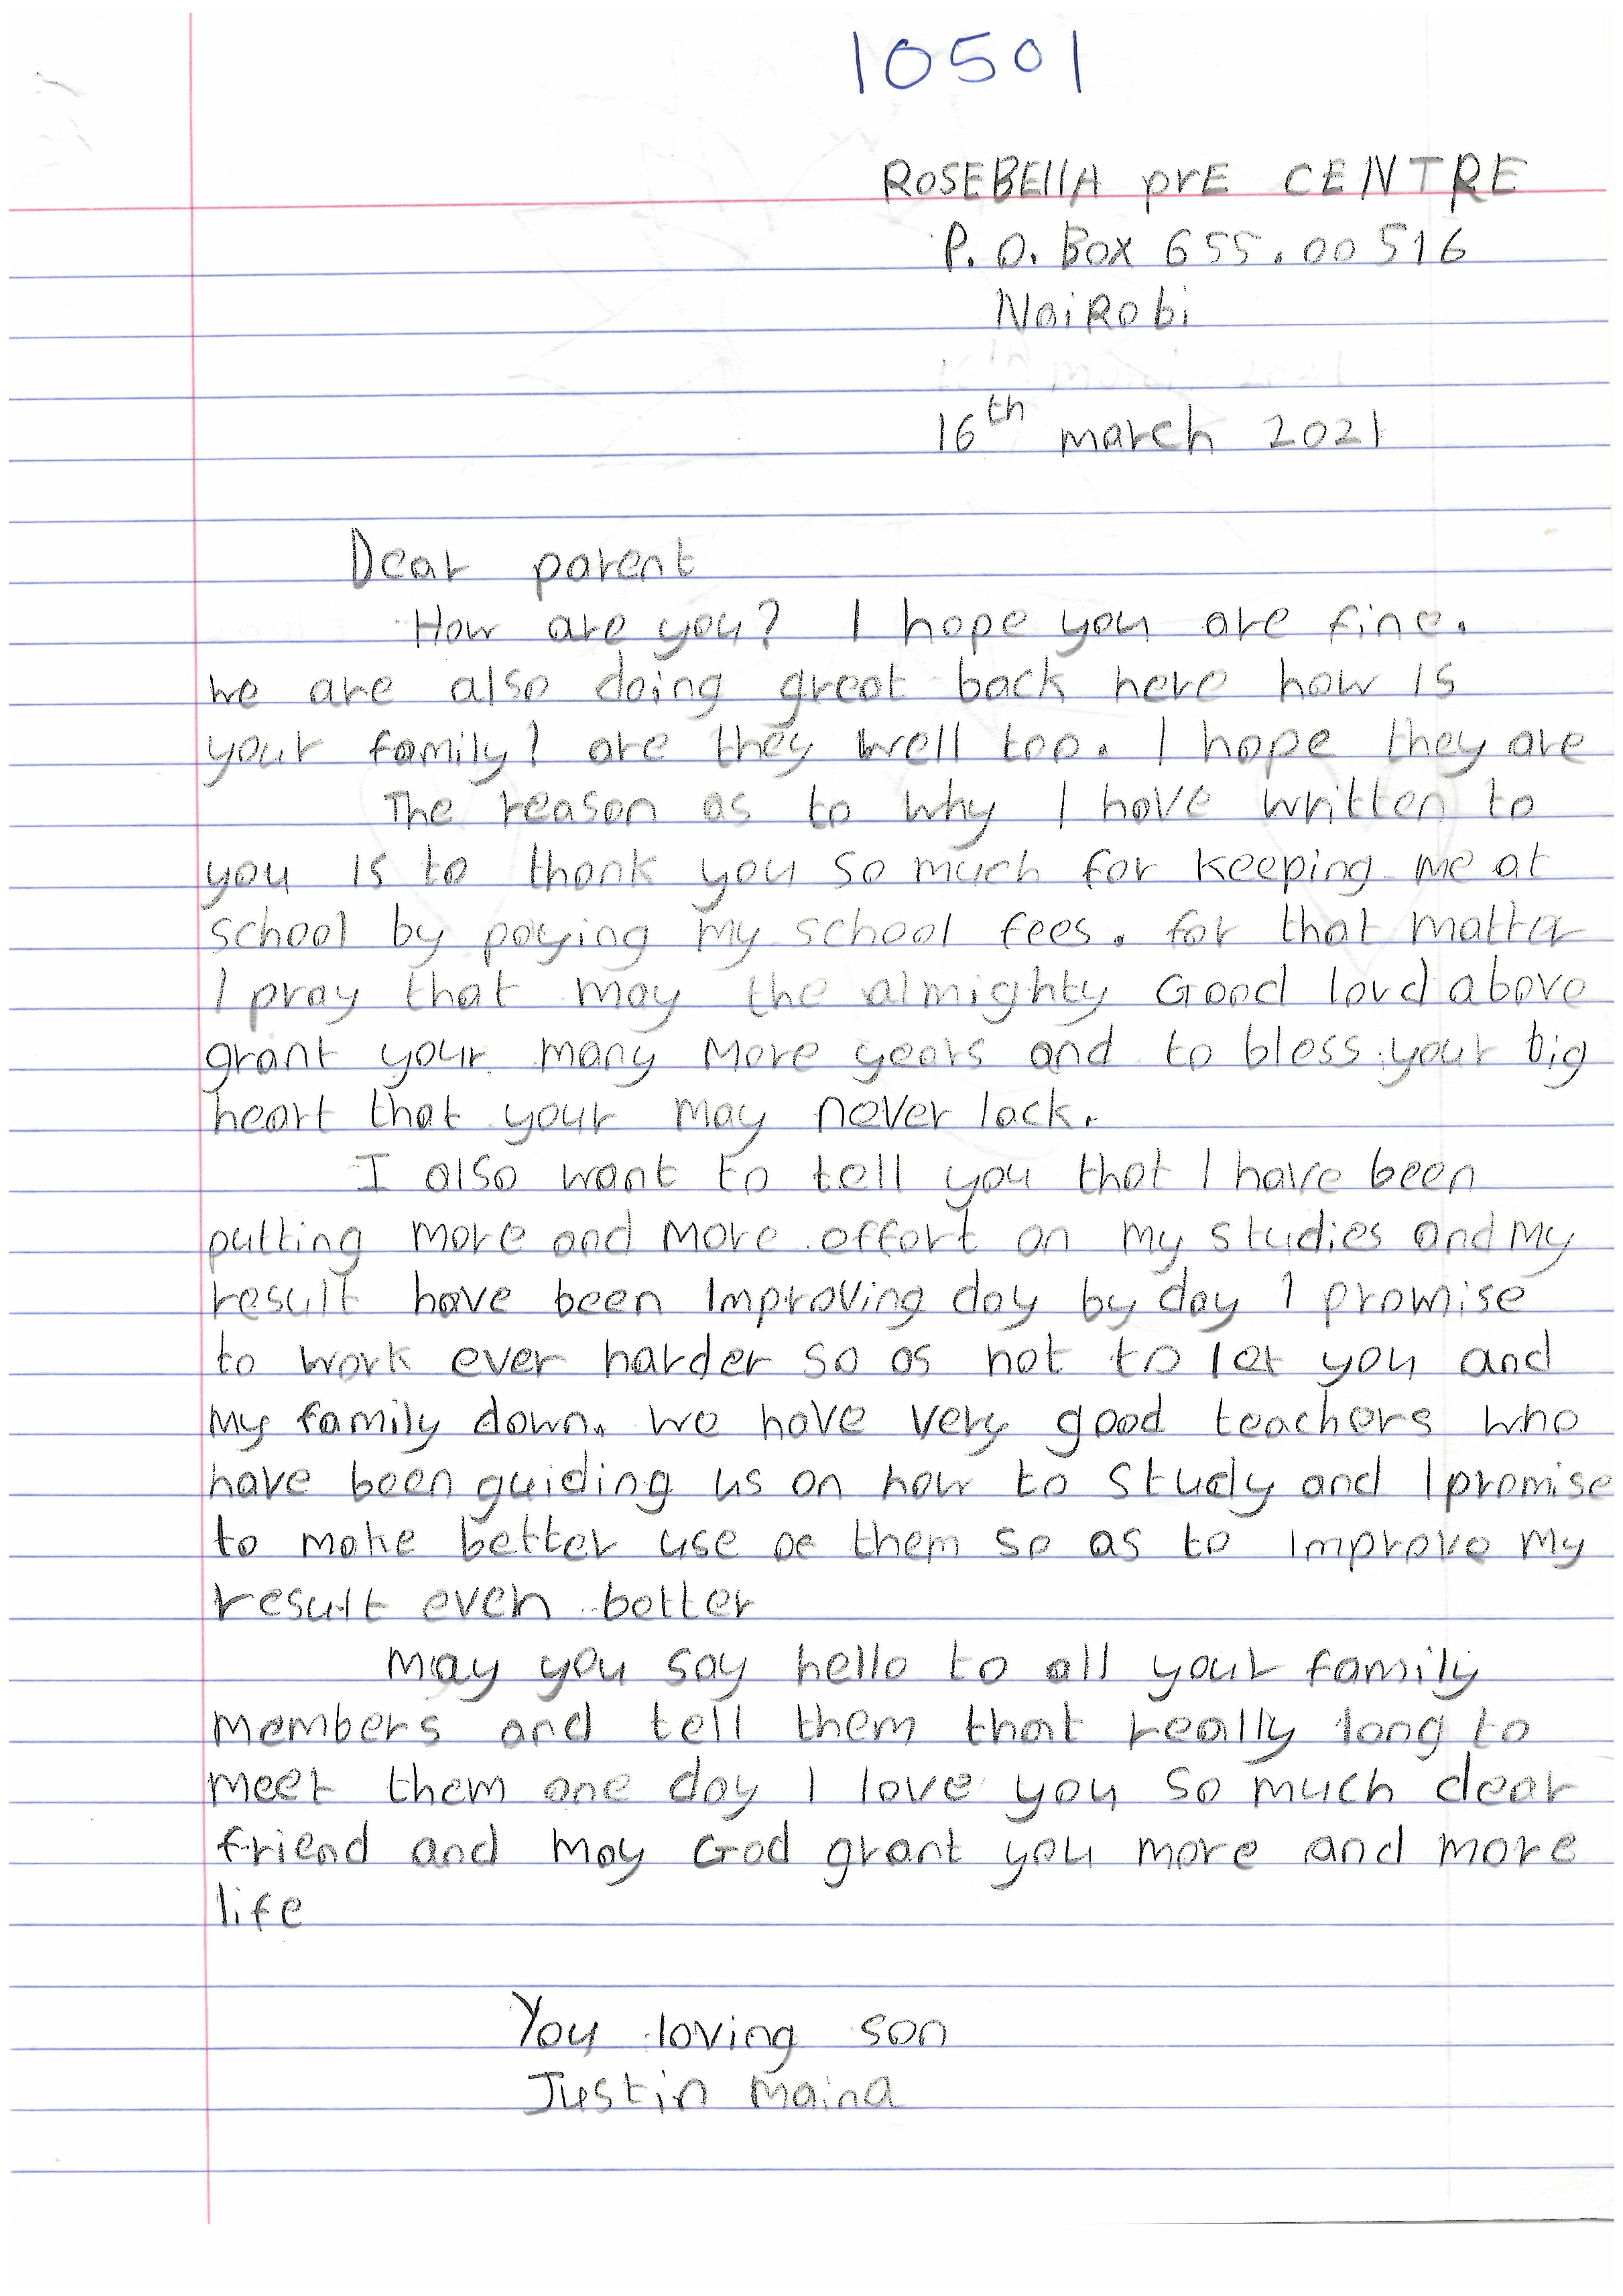 10501
ROSEBEllA prE CENTRE
P. O. Box 655.00516
NaiRobi
16th march 2021
Dear parent
How are you? I hope you are fine.
we are also doing great back here how is
your family? are they well too. I hope they are
The reason as to why I have written to
you is to thank you so much for keeping me at
school by paying my school fees. for that matter
I pray that may the almighty Good lord above
grant your many more years and to bless your big
heart that your may never lack.
I also want to tell you that I have been
putting more and more effort on my studies and my
result have been improving day by day I promise
to work ever harder so as not to let you and
my family down. we have very good teachers who
have been guiding us on how to study and I promise
to make better use of them so as to improve my
result even better
may you say hello to all your family
members and tell them that really long to
meet them one day I love you so much dear
friend and may God grant you more and more
life
You loving son
Justin maina